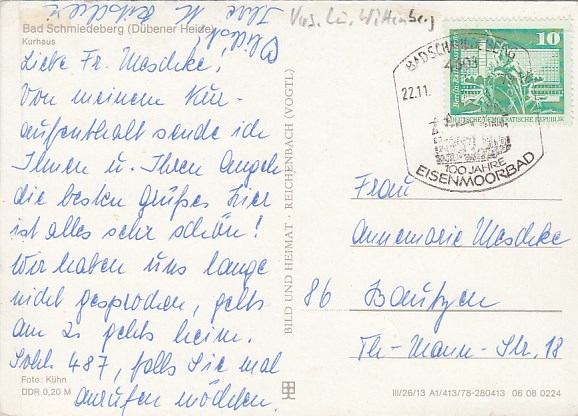 Vus. Lu. Wittenberg
Bad Schmiedeberg (Dübener Heide)
Kurhaus
Liebe Fr. Maschke!
Von meinem Kur-
aufenthalt sende ich
Ihnen u. Ihren Angeh.
die besten Grüße. Hier
ist alles sehr schön!
Wir haben uns lange
nicht gesprochen, gehts
am 25 gehts heim.
454 487, falls Sie mal
anrufen möchten.
Ihre
Foto: Kühn
DDR 0,20 M
BILD UND HEIMAT · REICHENBACH (VOGTL)
10
DEUTSCHE DEMOKRATISCHE REPUBLIK
BAD SCHMIEDEBERG
22.11.
100 JAHRE
EISENMOORBAD
Frau
Annemarie Maschke
86 Bautzen
Th-Mann-Str. 18
III/26/13 A1/413/78-280413 06 08 0224